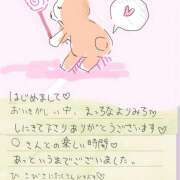 はじめまして♡
おいそがしい中、えっろなよりみち♡
しにきて下さりありがとうございます♡
○さんとの楽しい時間♡
あっというまでございました。